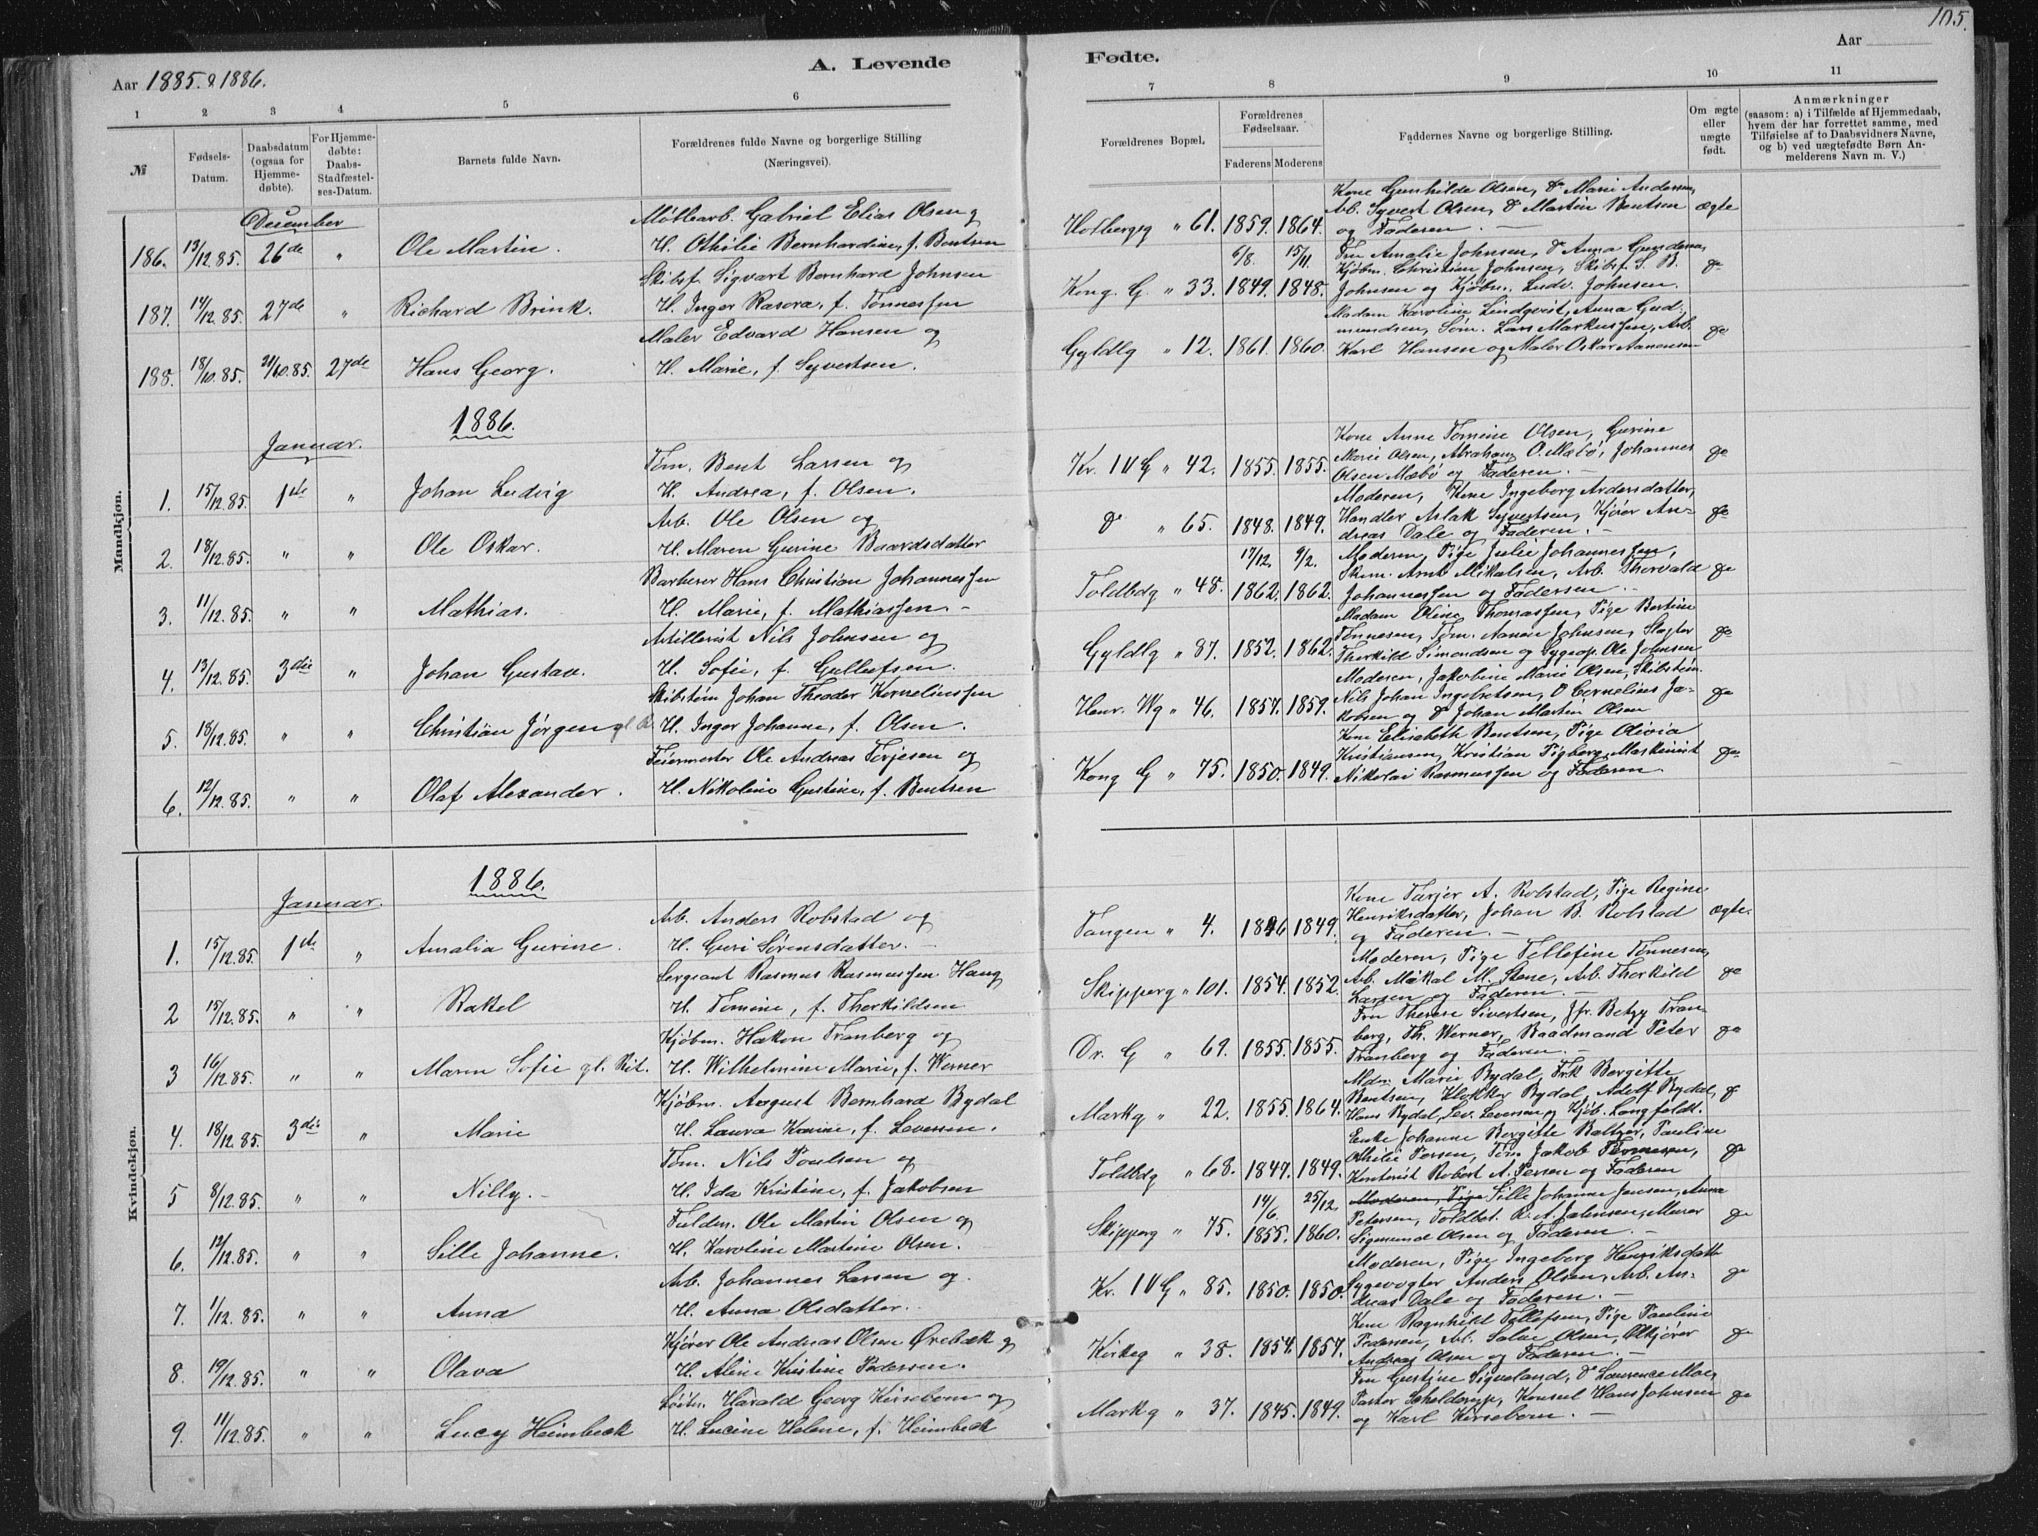 105.
Aar 1885 & 1886.
A. Levende
Fødte.
Aar
1 2 3 4 5 6 7 8 9 10 11
№
Fødsels-Datum.
Daabsdatum (ogsaa for Hjemmedøbte).
For Hjemmedøbte: Daabs-Stadfæstelses-Datum.
Barnets fulde Navn.
Forældrenes fulde Navne og borgerlige Stilling
(Næringsvei).
Forældrenes Bopæl.
Forældrenes Fødselsaar.
Faderens Moderens
Faddernes Navne og borgerlige Stilling.
Om ægte eller uægte født.
Anmærkninger
(saasom: a) i Tilfælde af Hjemmedaab, hvem der har forrettet samme, med Tilføielse af to Daabsvidners Navne, og b) ved uægtefødte Børn Anmelderens Navn m. V.)
Mandkjøn.
December
186. 13/12.85. 26de " Ole Martin.
Møllearb. Gabriel Elias Olsen og
H. Othilie Bernhardine, f. Bentsen
Holbergsg " 61. 1859. 1864.
Kone Gunhilde Olsen, do Marie Andersen,
Arb. Syvert Olsen, do Martin Bentsen
og Faderen. —
ægte
187. 14/12.85. 27de " Richard Brink.
Skibsf. Sigvart Bernhard Johnsen
H. Inger Rasora, f. Tønnessen
Kong. G. " 33. 6/8. 1849. 15/11. 1848.
Fru Amalie Johnsen, do Anna Gundersen,
Kjøbm. Christian Johnsen, Skibsf. S. B.
Johnsen og Kjøbm. Ludv. Johnsen.
do
188. 18/10.85. 21/10.85. 27de Hans Georg.
Maler Edvard Hansen og
H. Marie, f. Syvertsen.
Gyldlg " 12. 1861. 1860.
Madam Karoline Lindqvist, Anna Gud-
mundsen, Søm. Lars Markussen, Arb.
Karl Hansen og Maler Oskar Aanensen
do
1886.
Januar.
1. 15/12.85. 1ste " Johan Ludvig
Tøm. Bent Larsen og
H. Andrea, f. Olsen.
Kr. IV G " 42. 1855. 1855.
Kone Anne Tomine Olsen, Gurine
Marie Olsen, Abraham O. Mæbø, Johannes
Olsen Mæbø og Faderen. —
do
2. 18/12.85. " " Ole Oskar.
Arb. Ole Olsen og
H. Maren Gurine Baardsdatter
do " 65. 1848. 1849.
Moderen, Kone Ingeborg Andersdatter,
Handler Aslak Syvertsen, Kjører An-
dreas Dale og Faderen.
do
3. 11/12.85. " " Mathias.
Barberer Hans Christian Johannessen
H. Marie, f. Mathiassen —
Toldbdg " 48. 17/12. 1862. 9/2. 1862.
Moderen, Pige Julie Johannessen,
Skom. Arnt Mikalsen, Arb. Thorvald
Johannessen og Faderen
do
4. 13/12.85. 3die " Johan Gustav.
Artillerist Nils Johnsen og
H. Sofie, f. Gullofsen.
Gyldlg " 87. 1852. 1862.
Madam Oline Thomassen, Pige Bertine
Tønnesen, Tøm. Aanon Johnsen, Slagter
Therkild Simondsen og Sygeop. Ole Johnsen
do
5. 18/12.85. " " Christian Jørgen gl. R
Skibstøm Johan Theodor Korneliussen
H. Inger Johanne, f. Olsen.
Henr. Wg " 46. 1857. 1859.
Moderen, Jakobine Marie Olsen, Skibstøm.
Nils Johan Ingebretsen, do Cornelius Ja-
kobsen og do Johan Martin Olsen
do
6. 12/12.85. " " Olaf Alexander.
Feiermester Ole Andreas Terjesen og
H. Nikoline Gustine, f. Bentsen
Kong G " 75. 1850. 1849.
Kone Elisabeth Bentsen, Pige Olivia
Kristiansen, Kristian Figberg, Maskinist
Nikolai Rasmussen og Faderen.
do
Kvindekjøn.
1886.
Januar.
1. 15/12.85. 1ste " Amalia Gurine.
Arb. Anders Robstad og
H. Guri Sørensdatter. —
Tangen " 4. 1846 1849.
Kone Tarjer A. Robstad, Pige Regine
Henriksdatter, Johan B. Robstad
og Faderen. —
ægte.
2 15/12.85. " " Rakel
Sergeant Rasmus Rasmussen Haug
H. Tomine, f. Therkildsen
Skipperg " 101. 1854. 1852.
Moderen, Pige Tellefine Tønnesen,
Arb. Mikal M. Stene, Arb. Therkild
Larsen og Faderen.
do
3 16/12.85. " " Maren Sofie gl. Rit.
Kjøbm. Hakon Tranberg og
H. Wilhelmine Marie, f. Werner
Dr. G " 69. 1855. 1855.
Fru Therese Sivertsen, Jfr. Betzy Tran-
berg, Th. Werner, Raadmand Peter
Tranberg og Faderen.
do
4. 18/12.85. 3die " Marie
Kjøbm. August Bernhard Rydal
H. Laura Karine, f. Leversen.
Markg " 22. 1855. 1864.
Mdm. Marie Rydal, Frk Bergitte
Bentsen, Klokker Rydal, Adolf Rydal,
Hans Rydal, Lev. Leversen og Kjøb. Langfeldt.
do
5 8/12.85. " " Nilly. —
Tøm. Nils Poulsen og
H. Ida Kristine, f. Jakobsen
Toldbdg " 68. 1847. 1849.
Enke Johanne Bergitte Baltzer, Pauline
Othilie Persen, Tøm Jakob Tønnesen,
Kontorist Robert A. Persen og Faderen
do
6. 12/12.85. " " Sille Johanne.
Fuldm. Ole Martin Olsen og
H. Karoline Martine Olsen.
Skipperg " 75. 14/6. 1855. 25/12. 1860.
Moderen, Pige Sille Johanne Jensen, Anna
Petersen, Toldbet. R. A. Jahnsen, Murer
Sigmund Olsen og Faderen.
do
7. 1/12.85. " " Anna
Arb. Johannes Larsen og
H. Anna Olsdatter.
Kr. IV G " 85. 1850. 1850.
Moderen, Pige Ingeborg Henriksdatt
Sygevogter Anders Olsen, Arb. An-
dreas Dale og Faderen. —
do
8. 19/12.85. " " Olava
Kjører Ole Andreas Olsen Ørebæk og
H. Aline Kristine Pedersen.
Kirkeg " 38. 1854. 1857.
Kone Ragnhild Tellefsen, Pige Pauline
Pedersen, Arb. Salve Olsen, Ølkjører
Andreas Olsen og Faderen. —
do
9. 11/12.85. " " Lucy Heimbeck
Løitn. Harald Georg Kirsebom og
H. Lucine Helene, f. Heimbeck
Markg " 37. 1845. 1849.
Fru Gustine Sigveland, do Laurence Moe,
Pastor Schelderup, Konsul Hans Johnsen
og Karl Kirsebom. —
do